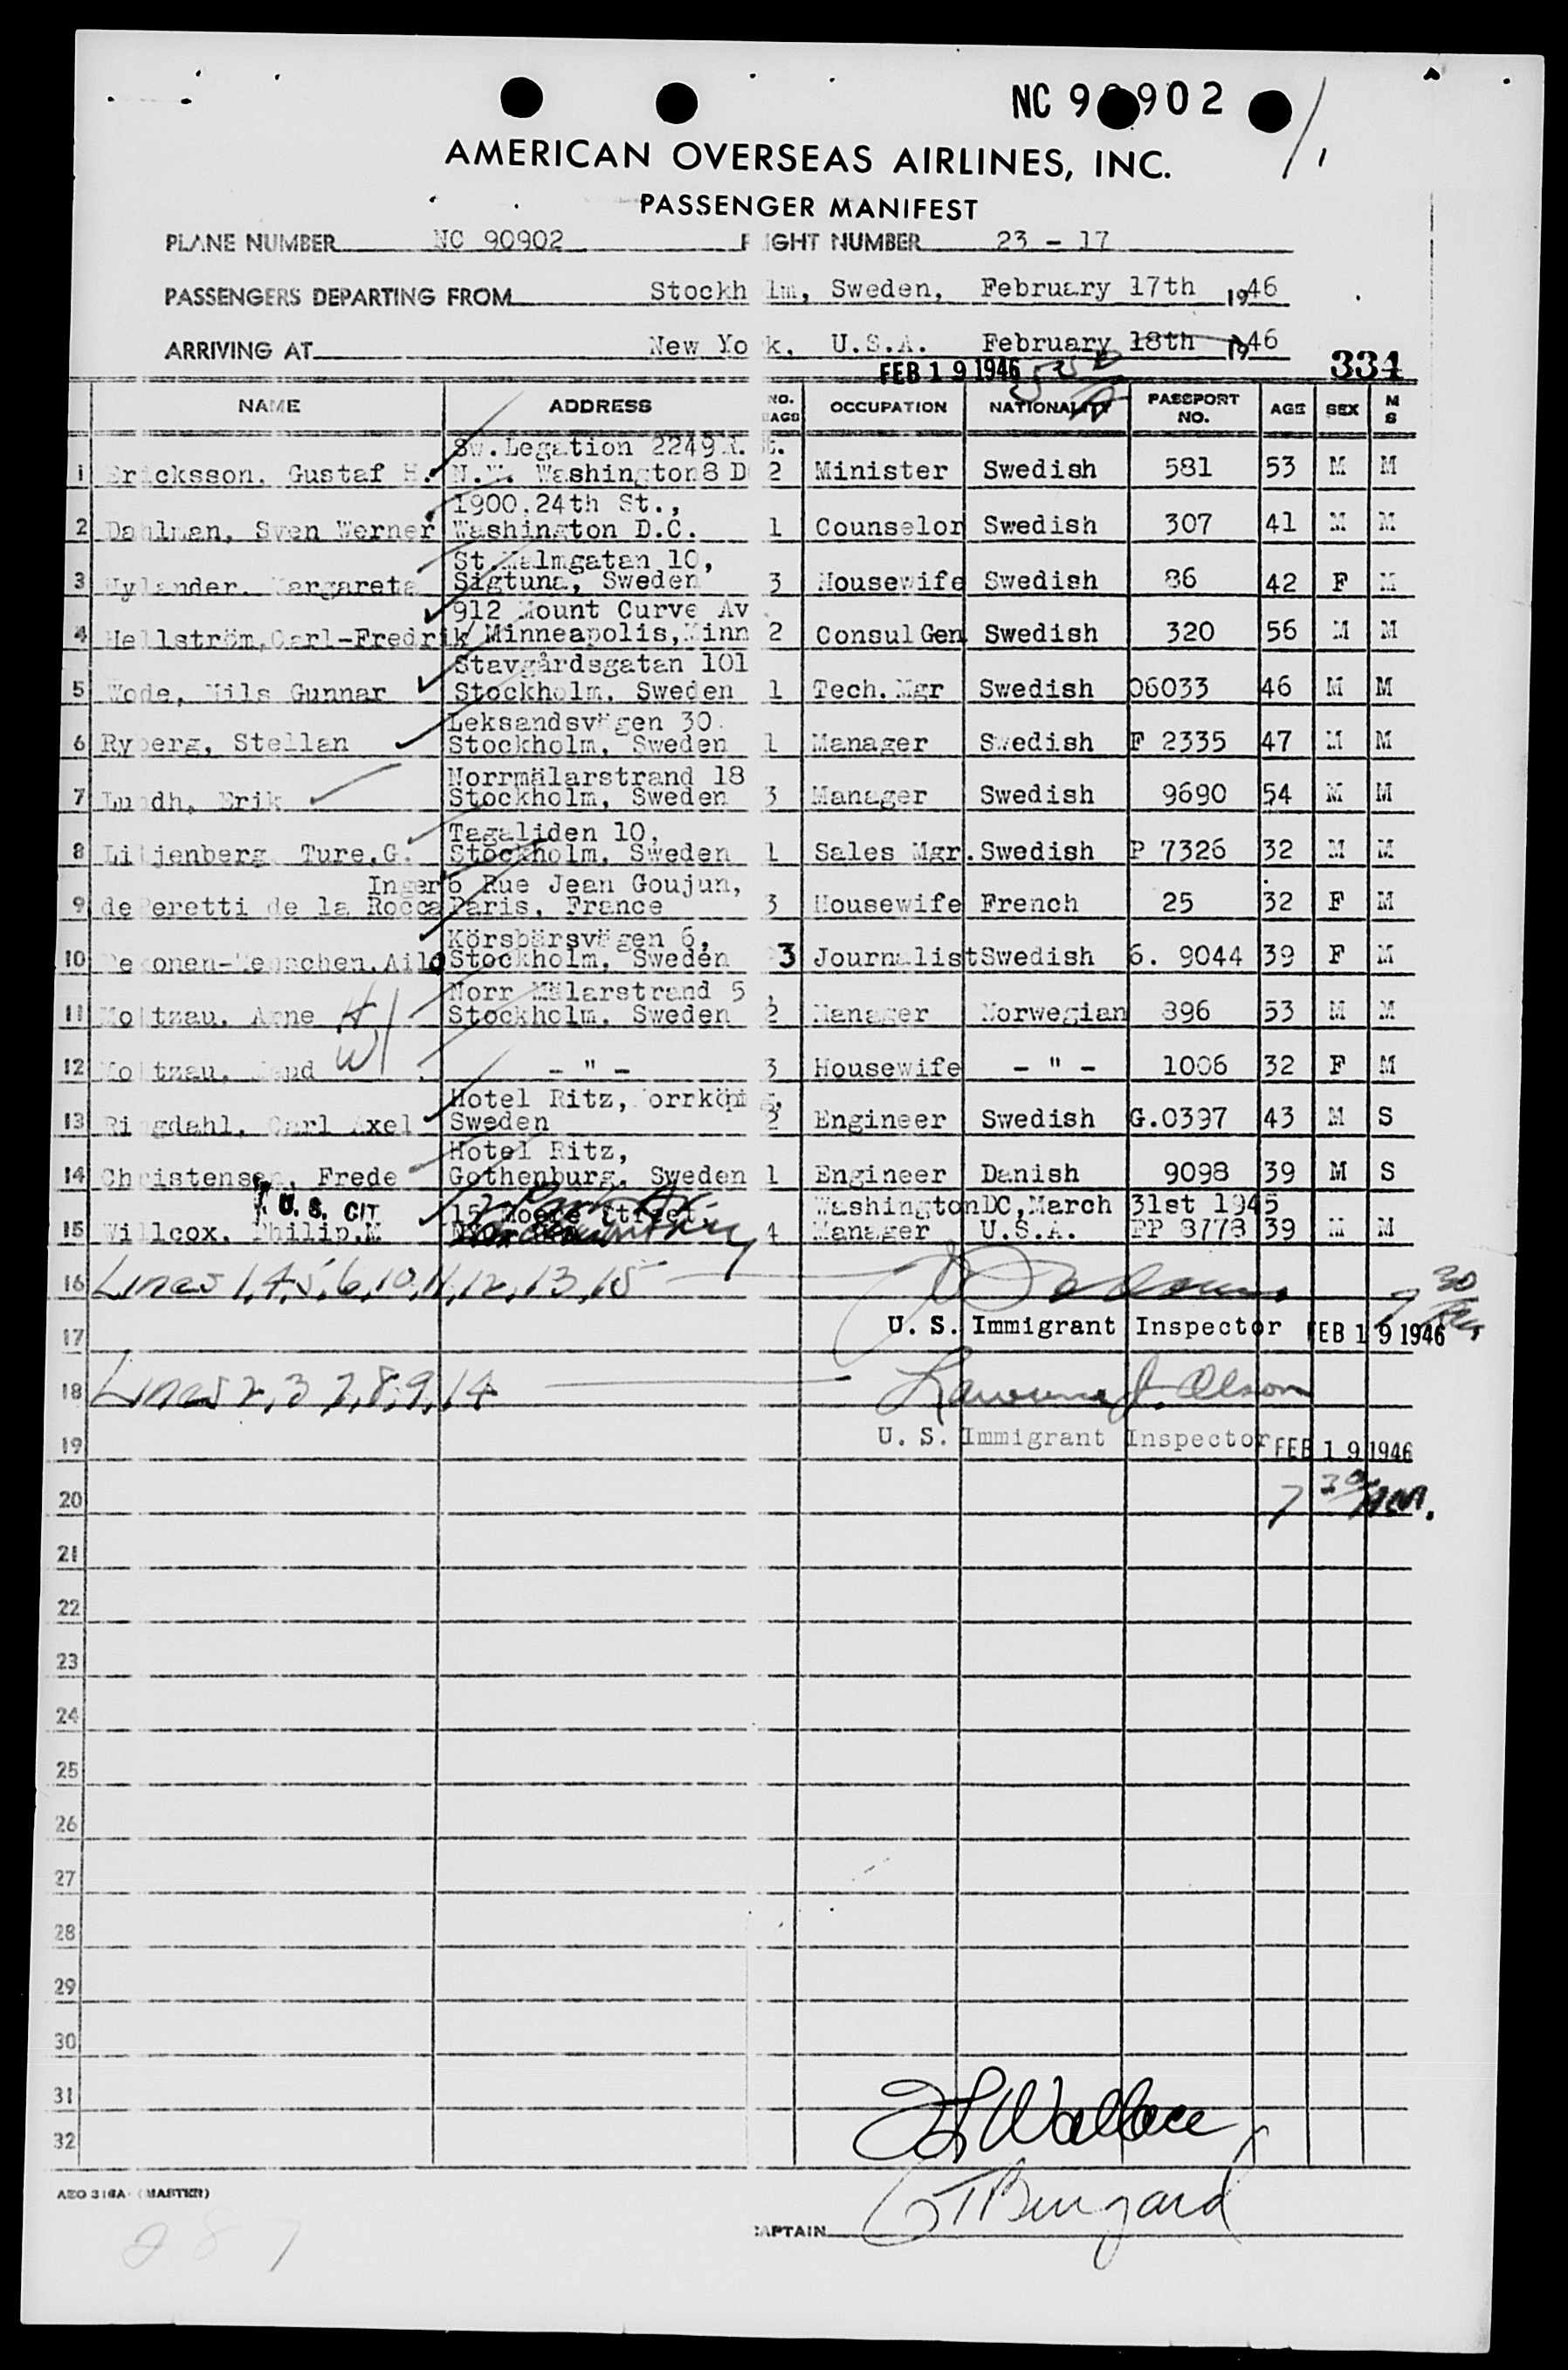 NC 90902
AMERICAN OVERSEAS AIRLINES, INC.
PASSENGER MANIFEST
PLANE NUMBER NC 90902 FLIGHT NUMBER 23 - 17
PASSENGERS DEPARTING FROM Stockholm, Sweden, February 17th 1946
ARRIVING AT New York, U.S.A. February 18th 1946
FEB 19 1946 334
NAME ADDRESS NO. BAGS OCCUPATION NATIONALITY PASSPORT NO. AGE SEX M S
Sw.Legation 2249 R. St.
1 Ericksson, Gustaf H. N.W. Washington8 D 2 Minister Swedish 581 53 M M
1900.24th St.,
2 Dahlman, Sven Werner Washington D.C. 1 Counselor Swedish 307 41 M M
St.Malmgatan 10,
3 Hylander, Margareta Sigtuna, Sweden 3 Housewife Swedish 86 42 F M
912 Mount Curve Av
4 Hellström,Carl-Fredrik Minneapolis,Minn 2 Consul Gen Swedish 320 56 M M
Stavgårdsgatan 101
5 Wode, Nils Gunnar Stockholm, Sweden 1 Tech.Mgr Swedish 06033 46 M M
Leksandsvägen 30.
6 Ryberg, Stellan Stockholm, Sweden 1 Manager Swedish F 2335 47 M M
Norrmälarstrand 18
7 Lundh, Erik Stockholm, Sweden 3 Manager Swedish 9690 54 M M
Tegaliden 10,
8 Liljenberg Ture.G. Stockholm, Sweden 1 Sales Mgr. Swedish P 7326 32 M M
Inger 6 Rue Jean Goujun,
9 dePeretti de la Rocca Paris, France 3 Housewife French 25 32 F M
Körsbärsvägen 6,
10 Stockholm, Sweden 3 Journalist Swedish 6. 9044 39 F M
Norr Mälarstrand 5,
11 Moltzau, Arne Stockholm, Sweden 2 Manager Norwegian 896 53 M M
12 Moltzau, - " - 3 Housewife - " - 1006 32 F M
Hotel Ritz, Norrköping,
13 Ringdahl, Carl Axel Sweden 2 Engineer Swedish G.0397 43 M S
Hotel Ritz,
14 Christensen, Frede Gothenburg, Sweden 1 Engineer Danish 9098 39 M S
U. S. CIT 15 Moore Street, Washington DC,March 31st 1945
15 Willcox, Philip.M 4 Manager U.S.A. PP 8778 39 M M
16 Lines 1,4,5,6,10,11,12,13,15
17 U. S. Immigrant Inspector FEB 19 1946
18 Lines 2,3 7,8,9,14 Lawrence J. Olson
19 U. S. Immigrant Inspector FEB 19 1946
20 7 30 AM.
21
22
23
24
25
26
27
28
29
30
31
32
AEO 316A (MASTER)
CAPTAIN
287